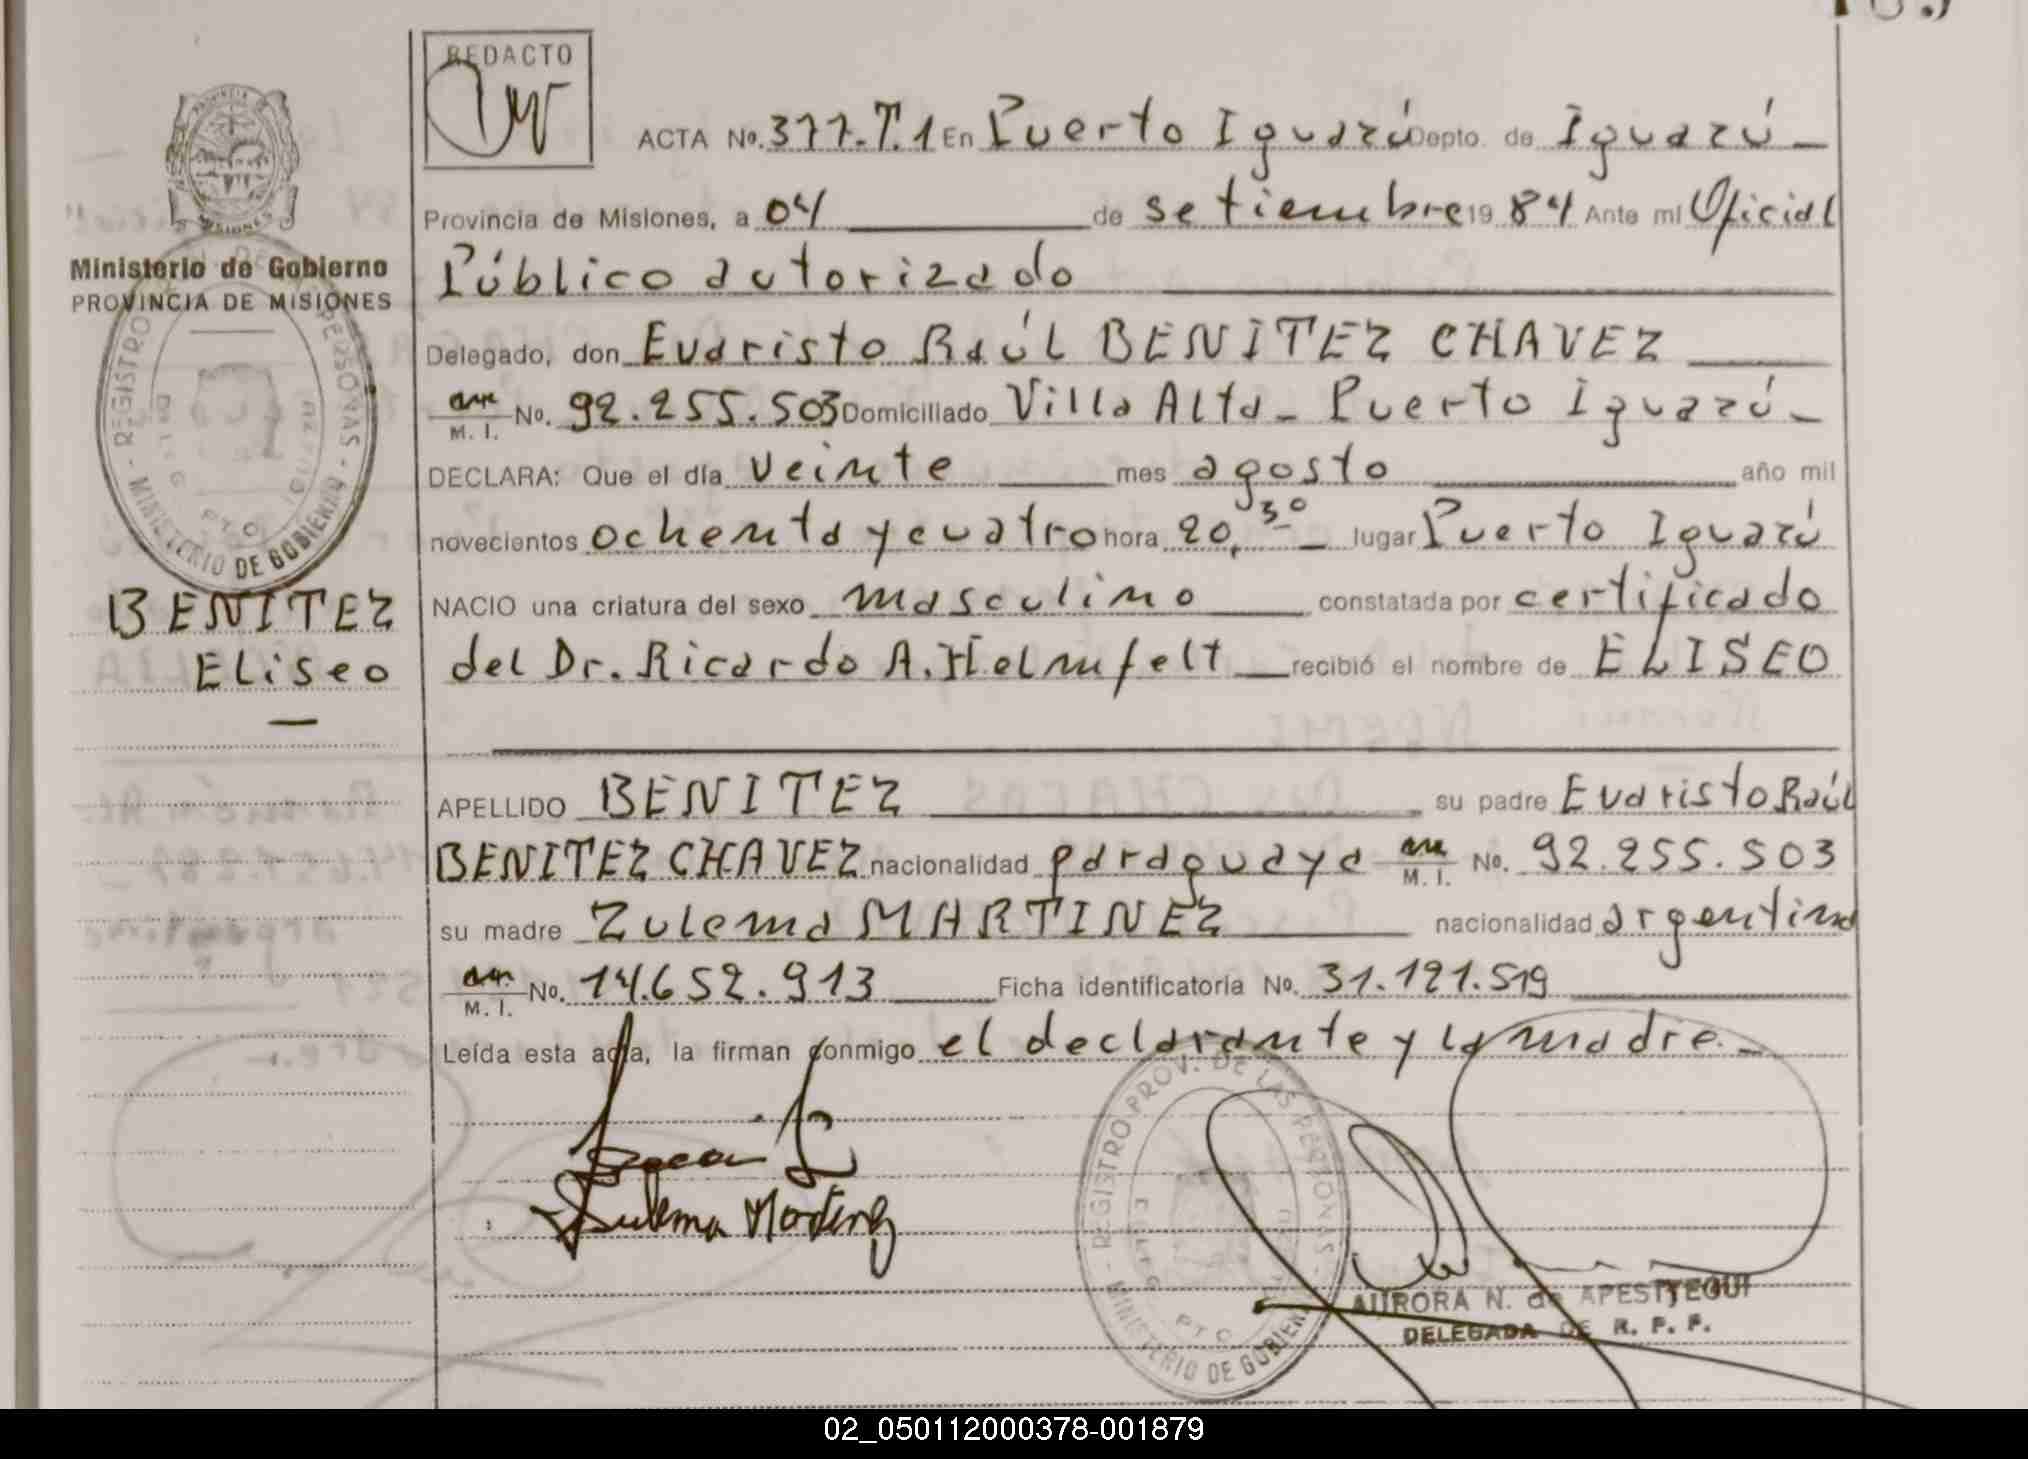 REDACTO
ACTA No. 377.T.1 En Puerto Iguazú Depto. de Iguazú
Provincia de Misiones, a 04 de setiembre 19 84 Ante mí Oficial
Público autorizado
Delegado, don Evaristo Raúl BENITEZ CHAVEZ
M. I. No. 92.255.503 Domiciliado Villa Alta - Puerto Iguazú -
DECLARA: Que el día veinte mes agosto año mil
novecientos ochenta y cuatro hora 20,30 lugar Puerto Iguazú
NACIO una criatura del sexo masculino constatada por certificado
del Dr. Ricardo A. Helmfelt recibió el nombre de ELISEO
APELLIDO BENITEZ su padre Evaristo Raúl
BENITEZ CHAVEZ nacionalidad paraguaya M. I. No. 92.255.503
su madre Zulema MARTINEZ nacionalidad argentina
M. I. No. 14.652.913 Ficha identificatoria No. 31.121.519
Leída esta acta, la firman conmigo el declarante y la madre. -
Zulema Martinez
REGISTRO PROV. DE LAS PERSONAS - MINISTERIO DE GOBIERNO
AURORA N. de APESTEGUI
DELEGADA DE R. P. P.
PROVINCIA DE MISIONES
Ministerio de Gobierno
PROVINCIA DE MISIONES
REGISTRO PERSONAS - MINISTERIO DE GOBIERNO
BENITEZ
Eliseo
02_050112000378-001879